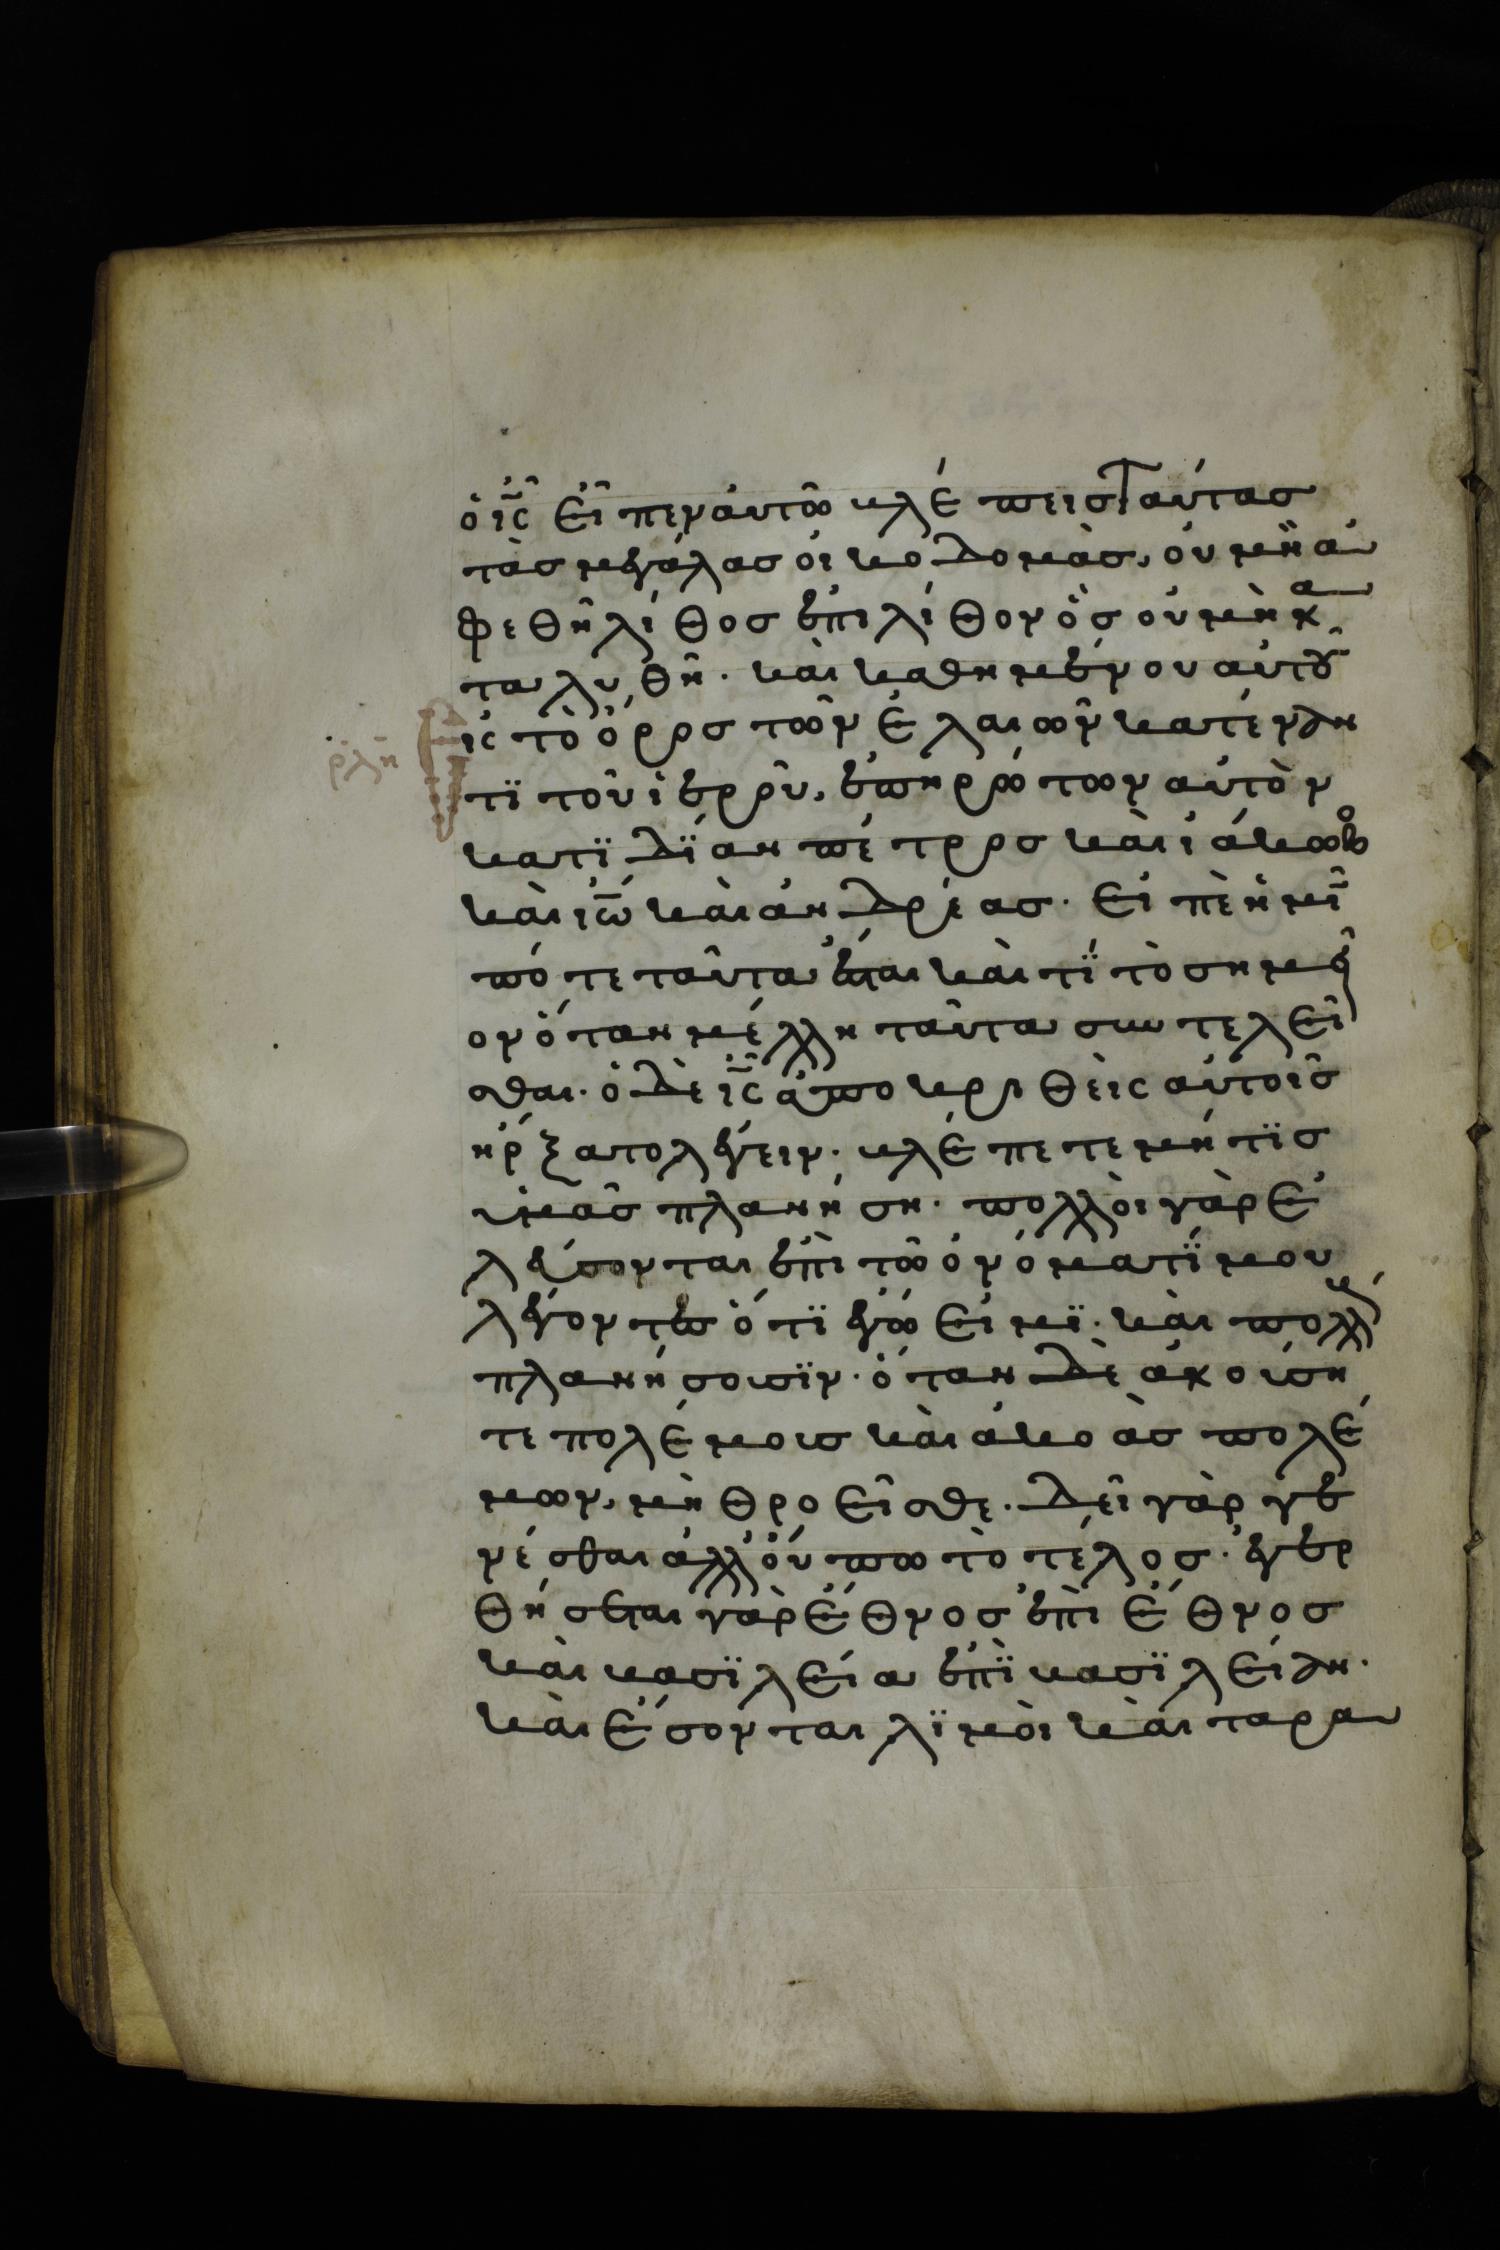 ὁ ις̅ εἶπεν αυτῶ βλέπεισ ταύτασ
τὰσ μεγάλασ οἰκοδομὰσ, οὐ μὴ ἀ
φεθῆ λίθοσ ἐπι λίθον ὃσ οὐ μὴ κα
ταλυθῆ. καὶ καθημένου αὐτοῦ
εἰς τὸ ὄροσ τῶν ἐλαιῶν κατέναν
τϊ τοῦ ἱεροῦ, ἐπηρώτων αὐτὸν
κατϊδϊαν πέτροσ καὶ ιάκωβοσ
καὶ ιω̅ καὶ ἀνδρέασ. εἰπὲ ἡμῖν
πότε ταῦτα ἔσται καὶ τΐ τὸ σημεῖ
ον ὅταν μέλλη ταῦτα συντελεῖ
σθαι. ὁ δὲ ις̅ ἀποκριθεὶς αὐτοῖσ
ἤρξατο λέγειν. βλέπετε μή τϊσ
ὑμᾶσ πλανήση. πολλοὶ γὰρ ἐ
λεύσονται ἐπὶ τῶ ὀνόματϊ μου
λέγοντεσ ὅτϊ ἐγώ εἰμϊ. καὶ πολλούσ
πλανήσουσϊν. ὅταν δὲ ἀκούση
τε πολέμουσ καὶ ἀκοὰσ πολέ
μων, μὴ θροεῖσθε. δεῖ γὰρ γε
νέσθαι ἀλλ οὔπω τὸ τέλοσ. ἐγερ
θήσεται γὰρ ἔθνοσ ἐπὶ ἔθνοσ
καὶ βασϊλεία ἐπῒ βασϊλείαν.
καὶ ἔσονται λϊμοὶ καὶ ταρα
ρλη